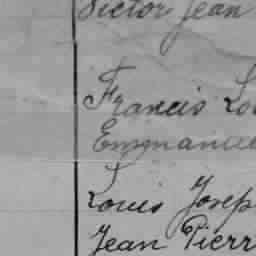 Victor Jean
Francis Lou
Emmanuel
Louis Josep
Jean Pierr